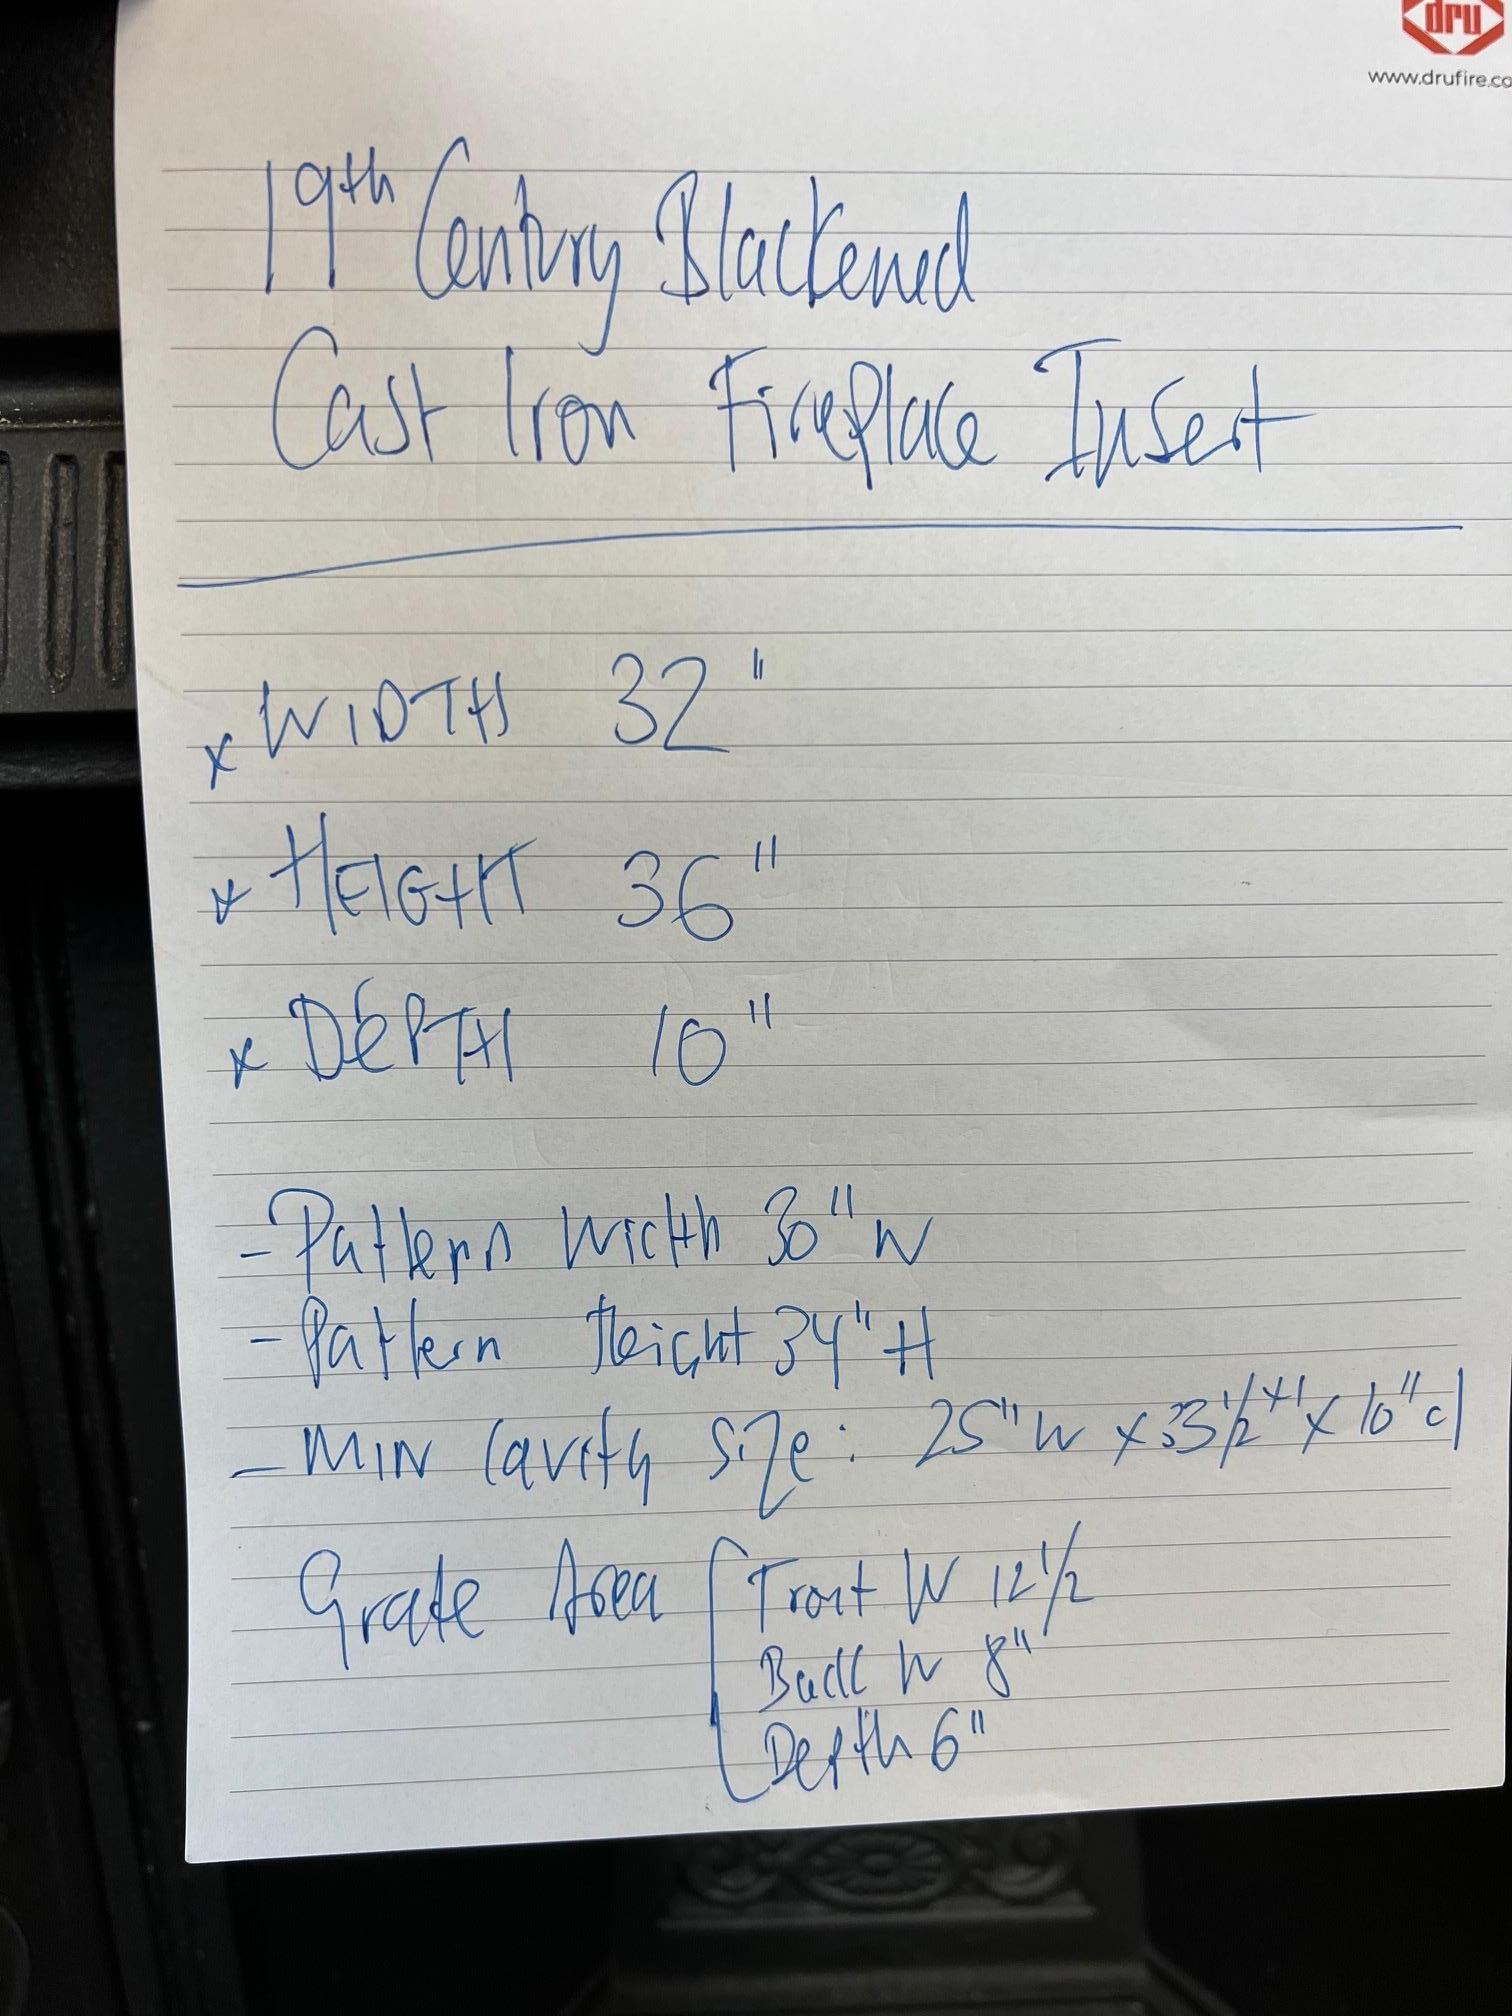 dru
www.drufire.co
19th Century Blackened
Cast Iron Fireplace Insert
x WIDTH 32"
x HEIGHT 36"
x DEPTH 10"
- Pattern Width 30" W
- Pattern Height 34" H
- MIN Cavity Size: 25" W x 33 1/2 H x 10" d
Grate Area Front W 12 1/2
Back W 8"
Depth 6"